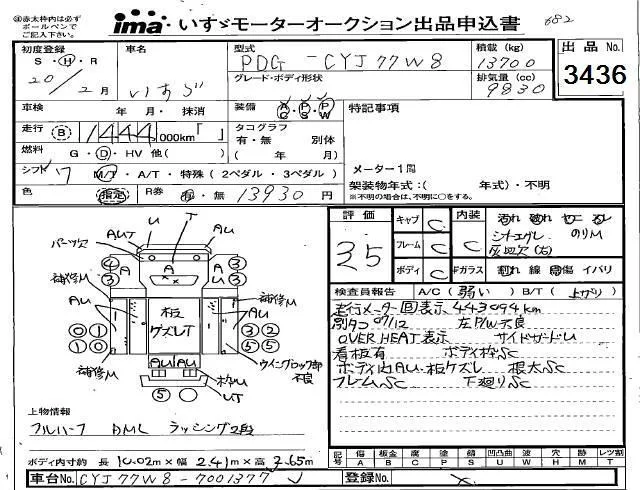 ㊟赤太枠内は必ず
ボールペンで
ご記入下さい。
ima いすゞモーターオークション出品申込書
682
初度登録
S・H・R
20年 2月
車名
いすゞ
型式
PDG-CYJ77W8
グレード・ボディ形状
積載 (kg)
13700
排気量 (cc)
9830
出品 No.
3436
車検 年 月・抹消
装備 A/C P/S P/W
特記事項
走行 B 1444,000km「 」
タコグラフ
有・無 別体
( 年 月)
燃料 G・D・HV 他( )
メーター1周
シフト 7 M/T・A/T・特殊(2ペダル・3ペダル)
架装物年式:( 年式)・不明
※不明の場合は、不明に○をする。
色 指定
R券 有・無 13930円
評価
35
キャブ C
フレーム C
ボディ C
内装 C
汚れ 破れ セニ
シートエグレ のりM
灰皿欠(右)
Fガラス 割れ 線 傷 イバリ
検査員報告 A/C(弱い) B/T(上がり)
走行メーター回表示 443094km
別タコ07/12 左P/W不良
OVER HEAT表示 サイドガードU
看板有 ボディ枠SC
ボディ内AU・板ケズレ 根太SC
フレームSC 下廻りSC
U
T
AUT
AU
パーツ欠
A
A
A
4
3
3
3
補修M
補修M
AU
AU
板
ケズレT
0
1
0
1
3
2
5
5
補修M
AU
AU
ウイングロック部
不良
枠M
UT
5
上物情報
フルハーフ DML ラッシング2段
ボディ内寸約 長 10.02m×幅 2.41m×高 2.65m
記号
傷 A
板金 B
腐 C
塗 P
錆 S
凹凸曲 U
波 W
穴 H
欠 M
レツ割 T
車台No. CYJ77W8-7001377
登録No.